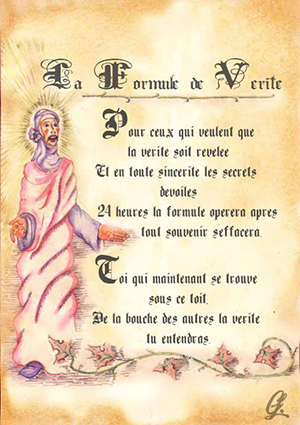 La Formule de Verite
Pour ceux qui veulent que
la verite soit revelee
Et en toute sincerite les secrets
devoiles
24 heures la formule operera apres
tout souvenir seffacera.
Toi qui maintenant se trouve
sous ce toit,
De la bouche des autres la verite
tu entendras.